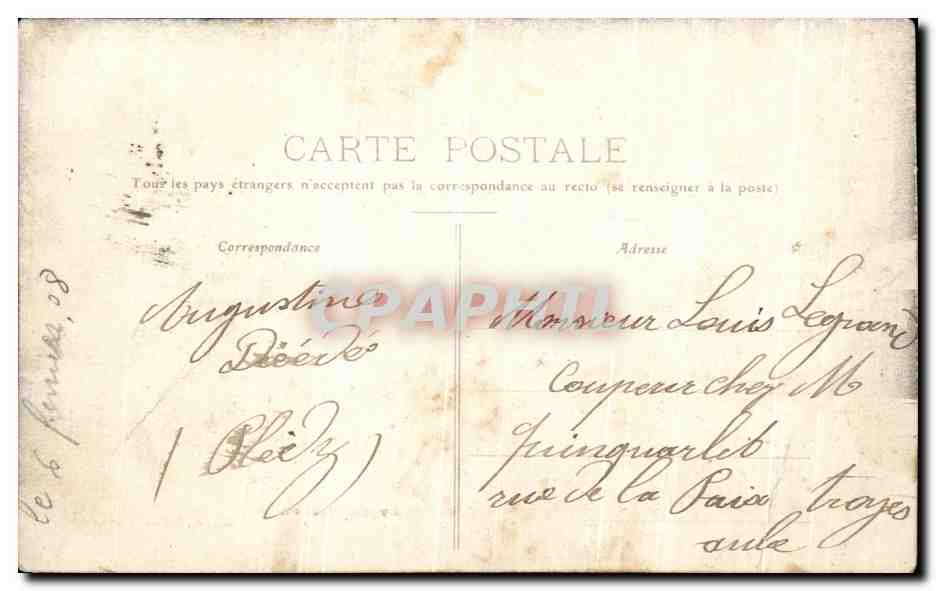 CARTE POSTALE
Tous les pays étrangers n'acceptent pas la correspondance au recto (se renseigner à la poste)
Correspondance
Adresse
le 6 08
CPAPHIL
Augustine
Monsieur Louis Legrand
Couperur chez M
quinquarlet
rue de la Paix troyes
aube